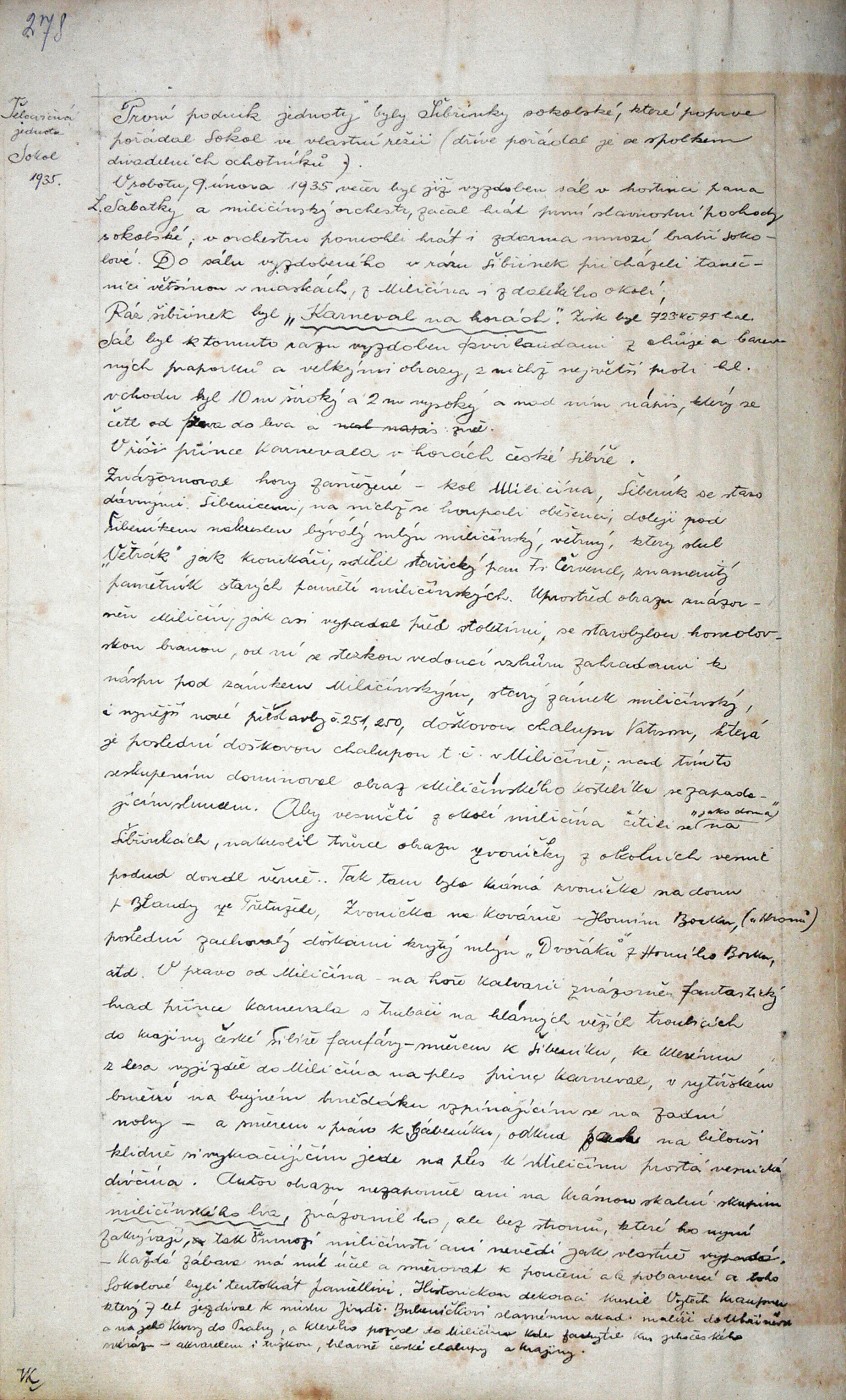 278
Tělocvičná
jednota
Sokol
1935.
První podnik jednoty byly Šibřinky sokolské, které poprve
pořádal Sokol ve vlastní režii (dříve pořádal je se spolkem
divadelních ochotníků).
V sobotu, 9. února 1935 večer byl již vyzdoben sál v hostinci pana
L. Šabatky a miličínský orchestr, začal hrát první slavnostní pochody
sokolské; v orchestru pomohli hrát i zdarma mnozí bratři Soko-
lové. Do sálu vyzdobeného v rázu šibřinek přicházeli taneč-
níci většinou v maskách, z Miličína i z dalekého okolí,
Ráz šibřinek byl „Karneval na horách". Zisk byl 723 Kč 75 hal.
Sál byl k tomuto rázu vyzdoben girlandami z chvojí a barev-
ných praporků a velkými obrazy, z nichž největší proti hl.
vchodu byl 10 m široký a 2 m vysoký a nad ním nápis, který se
četl od do leva a
V říši prince Karnevala v horách české Sibiře.
Znázorňoval hory zasněžené - kol Miličína, Šibeník se staro
dávnými. Šibenicemi, na nichž se houpali oběšenci, doleji pod
Šibeníkem nakreslen bývalý mlýn miličínský, větrný, který slul
„Větrák" jak kronikáři, sdělil stařický pan Fr. Červenel, znamenitý
pamětník starých pamětí miličínských. Uprostřed obrazu znázor-
něn Miličín, jak asi vypadal před stoletími, se starobylou homolov-
skou branou, od ní se stezkou vedoucí vzhůru zahradami k
náspu pod zámkem Miličínským, starý zámek miličínský,
i nynější nové č. 251, 250, doškovou chalupu která
je poslední doškovou chalupou t. č. v Miličíně; nad tímto
seskupením dominoval obraz Miličínského kostelíka se zapada-
jícím sluncem. Aby vesničtí z okolí Miličína cítili se „jako doma" na
Šibřinkách, nakreslil tvůrce obrazu zvoničky z okolních vesnic
pokud dovedl věrně.. Tak tam byla krásná zvonička na domu
p. Blandy ze Třetužele, Zvonička na Kovárně v Horním Borku,
poslední zachovalý doškami krytý mlýn „Dvořáků" z Horního Borku,
atd. V pravo od Miličína - na hoře Kalvarii znázorněn fantastický
hrad prince Karnevala s trubači na hlásných věžích troubících
do krajiny české Sibiře fanfáry - směrem k Šibeníku, ke kterému
z lesa vyjíždě do Miličína na ples princ Karneval, v rytířském
brnění na bujném hnědáku vzpínajícím se na zadní
nohy - a směrem v právo k odkud pak na bělouši
klidně si vykračujícím jede na ples k Miličínu prostá vesnická
dívčina. Autor obrazu nezapomněl ani na krásnou skalní skupinu
miličínského lva, znázornil ho, ale bez stromů, které ho nyní
zakrývají, tak že mnozí miličínští ani nevědí jak vlastně vypadá.
- Každá zábava má mít účel a směřovat k poučení a k pobavení a toho
Sokolové byli tentokrát pamětlivi. Historickou dekoraci kreslil Vojtěch
který 7 let jezdíval k mistru Jindř. Bubeníčkovi slavnému akad. malíři do
a na jeho kursy do Prahy, a kterého pozval do Miličína kde kus jihočeského
- akvarelem i tužkou, hlavně české chalupy a krajiny.
VK